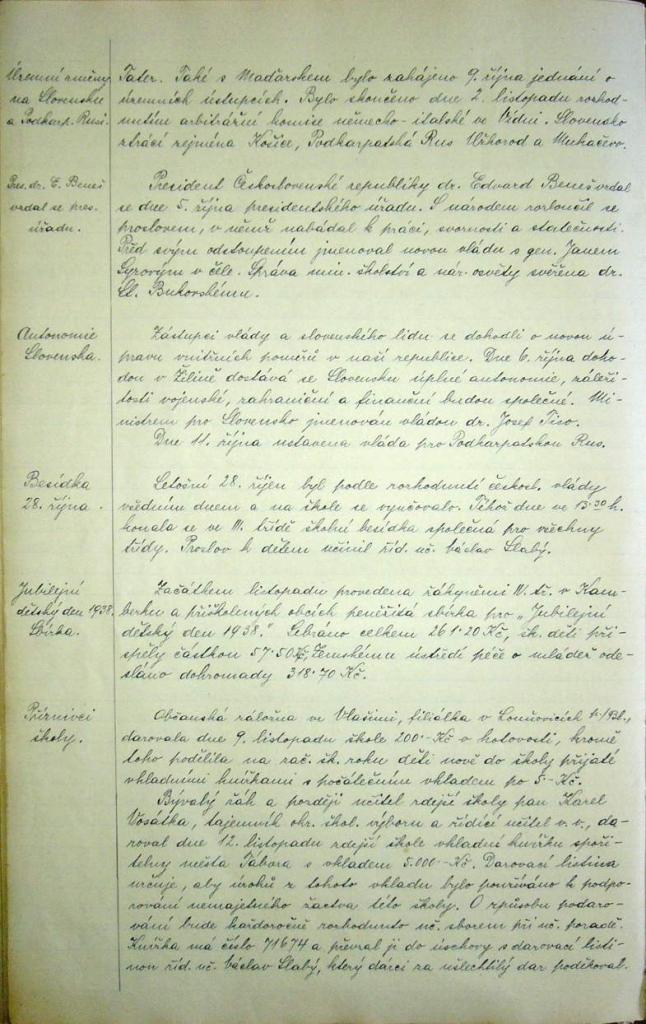 Územní změny
na Slovensku
a Podkarp. Rusi.
Tater. Také s Maďarskem bylo zahájeno 9. října jednání o
územních ústupcích. Bylo skončeno dne 2. listopadu rozhod-
nutím arbitrážní komise německo-italské ve Vídni. Slovensko
ztrácí zejména Košice, Podkarpatská Rus Užhorod a Mukačevo.
Pres. dr. E. Beneš
vzdal se pres.
úřadu.
President Československé republiky dr. Edvard Beneš vzdal
se dne 5. října presidentského úřadu. S národem rozloučil se
proslovem, v němž nabádal k práci, svornosti a statečnosti.
Před svým odstoupením jmenoval novou vládu s gen. Janem
Syrovým v čele. Správa min. školství a nár. osvěty svěřena dr.
St. Bukovskému.
Autonomie
Slovenska.
Zástupci vlády a slovenského lidu se dohodli o novou ú-
pravu vnitřních poměrů v naší republice. Dne 6. října doho-
dou v Žilině dostává se Slovensku úplné autonomie, zálež̌i-
tosti vojenské, zahraniční a finanční budou společné. Mi-
nistrem pro Slovensko jmenován vládou dr. Josef Tiso.
Dne 11. října ustavena vláda pro Podkarpatskou Rus.
Besídka
28. října.
Letošní 28. říjen byl podle rozhodnutí českosl. vlády
všedním dnem a na škole se vyučovalo. Téhož dne ve 13.30 h.
konala se ve III. třídě školní besídka společná pro všechny
třídy. Proslov k dětem učinil říd. uč. Václav Slabý.
Jubilejní
dětský den 1938.
Sbírka.
Začátkem listopadu provedena žákyněmi IV. tř. v Kam-
berku a přiškolených obcích peněžitá sbírka pro "Jubilejní
dětský den 1938." Sebráno celkem 261.20 Kč, šk. děti při-
spěly částkou 57.50 Kč, Zemskému ústředí péče o mládež ode-
sláno dohromady 318.70 Kč.
Příznivci
školy.
Občanská záložna ve Vlašimi, filiálka v Louňovicích p./Bl.,
darovala dne 9. listopadu škole 200.- Kč v hotovosti, kromě
toho podělila na zač. šk. roku děti nově do školy přijaté
vkladními knížkami s počátečním vkladem po 5.- Kč.
Bývalý žák a později učitel zdejší školy pan Karel
Vosátka, tajemník okr. škol. výboru a řídící učitel v. v., da-
roval dne 12. listopadu zdejší škole vkladní knížku spoři-
telny města Tábora s vkladem 5.000.- Kč. Darovací listina
určuje, aby úroků z tohoto vkladu bylo používáno k podpo-
rování nemajetného žactva této školy. O způsobu podaro-
vání bude každoročně rozhodnuto uč. sborem při uč. poradě.
Knížka má číslo 71674 a převzal ji do úschovy s darovací listi-
nou říd. uč. Václav Slabý, který dárci za ušlechtilý dar poděkoval.